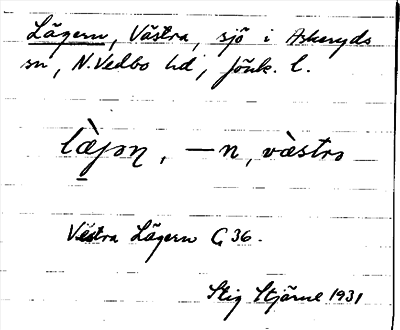 Lägern, Västra, sjö i Askeryds
sn, N. Vedbo hd, Jönk. l.
læ̀jən, –n, væ̀strə
Västra Lägern G 36.
Stig Stjärne 1931